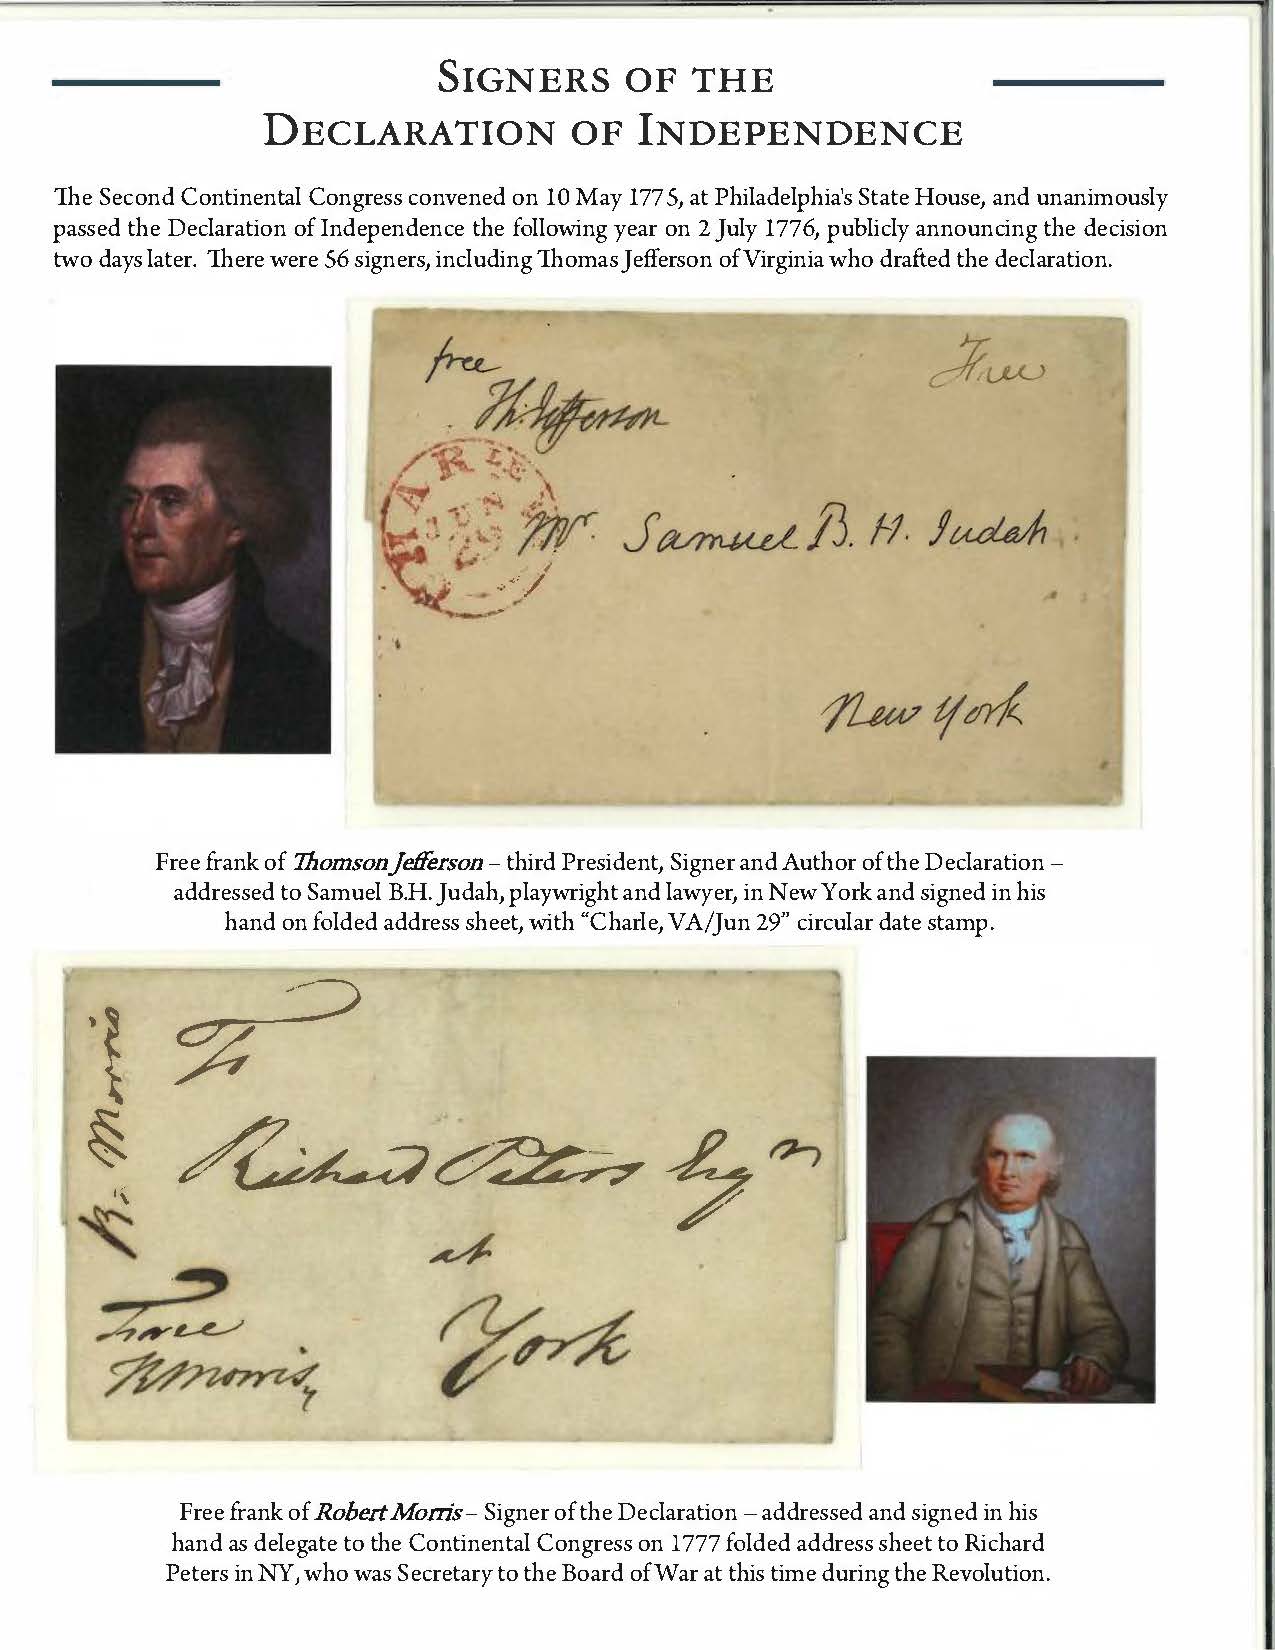 SIGNERS OF THE
DECLARATION OF INDEPENDENCE
The Second Continental Congress convened on 10 May 1775, at Philadelphia's State House, and unanimously
passed the Declaration of Independence the following year on 2 July 1776, publicly announcing the decision
two days later. There were 56 signers, including Thomas Jefferson of Virginia who drafted the declaration.
free
Free
Th: Jefferson
CHARLE
JUN
29
Mr. Samuel B. H. Judah
New York
Free frank of Thomson Jefferson – third President, Signer and Author of the Declaration –
addressed to Samuel B.H. Judah, playwright and lawyer, in New York and signed in his
hand on folded address sheet, with “Charle, VA/Jun 29” circular date stamp.
R. Morris
To
Richard Peters Esqr
at
York
Free
R Morris
Free frank of Robert Morris – Signer of the Declaration – addressed and signed in his
hand as delegate to the Continental Congress on 1777 folded address sheet to Richard
Peters in NY, who was Secretary to the Board of War at this time during the Revolution.